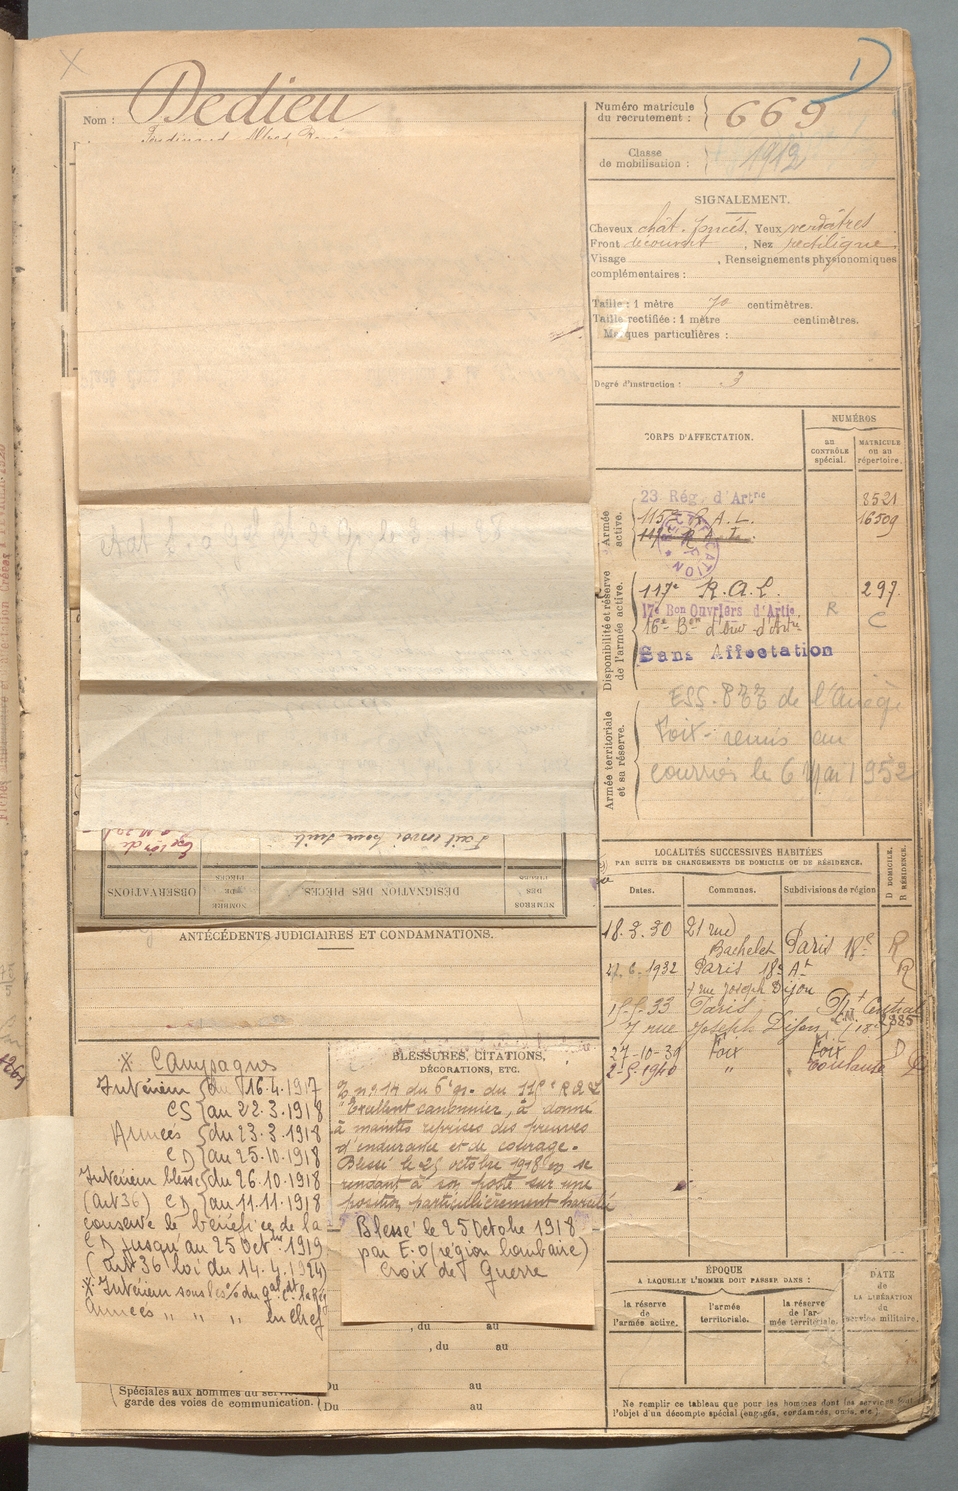 Nom : Dedieu
Ferdinand Alfred René
Numéro matricule
du recrutement : 669
Classe
de mobilisation : 1912
SIGNALEMENT.
Cheveux chât. foncés, Yeux verdâtres
Front découvert, Nez rectiligne
Visage , Renseignements physionomiques
complémentaires :
Taille : 1 mètre 70 centimètres.
Taille rectifiée : 1 mètre centimètres.
Marques particulières :
Degré d'instruction : 3
CORPS D'AFFECTATION.
NUMÉROS
au
CONTRÔLE
spécial.
MATRICULE
ou au
répertoire.
Armée
active.
23 Rég. d'Artrie 8521
115e R.A.L. 16509
117e R.A.L.
Disponibilité et réserve
de l'armée active.
117e R.A.L. 297
17e Bon Ouvriers d'Artie R C
16e Bon d'Ouv. d'Artie
Sans Affectation
Armée territoriale
et sa réserve.
de l'Ariège
Foix - remis au
courrier le 6 Mai 1952
Fait envoi pour suite
OBSERVATIONS
NOMBRE
DE
PIÈCES
DÉSIGNATION DES PIÈCES.
NUMÉROS
DES
PIÈCES
LOCALITÉS SUCCESSIVES HABITÉES
PAR SUITE DE CHANGEMENTS DE DOMICILE OU DE RÉSIDENCE.
D DOMICILE.
R RÉSIDENCE.
Dates. Communes. Subdivisions de région
18.3.30 21 rue
Bachelet Paris 18e R
27.6.1932 Paris 18e Art R
7 rue Joseph Dijon
33 Paris Central
7 rue Joseph Dijon (18e)
27-10-39 Foix Foix D
1940 "
ANTÉCÉDENTS JUDICIAIRES ET CONDAMNATIONS.
* Campagnes
Intérieur du 16.4.1917
CS au 22.3.1918
Armées du 23.3.1918
CD au 25.10.1918
Intérieur blessé du 26.10.1918
(Art 36) CD au 11.11.1918
conserve le bénéfice de la
CD jusqu'au 25 Octbre 1919
(art 36 loi du 14.4.1924)
* Intérieur sous les o/ du gal Cdt la Rég
Armées " " " en Chef
BLESSURES, CITATIONS,
DÉCORATIONS, ETC.
O/ no 14 du 6e gr. du 115e R.A.L.
"Excellent canonnier, à donné
à maintes reprises des preuves
d'endurance et de courage.
Blessé le 25 octobre 1918 en se
rendant à son poste sur une
position particulièrement harcelée
Blessé le 25 Octobre 1918
par E.O (région lombaire)
Croix de Guerre
, du au
, du au
Du au
Du au
Spéciales aux hommes du service
garde des voies de communication.
ÉPOQUE
A LAQUELLE L'HOMME DOIT PASSER DANS :
la réserve
de
l'armée active.
l'armée
territoriale.
la réserve
de l'ar-
mée territoriale.
DATE
de
LA LIBÉRATION
du
service militaire.
Ne remplir ce tableau que pour les hommes dont les services font
l'objet d'un décompte spécial (engagés, condamnés, omis, etc.)